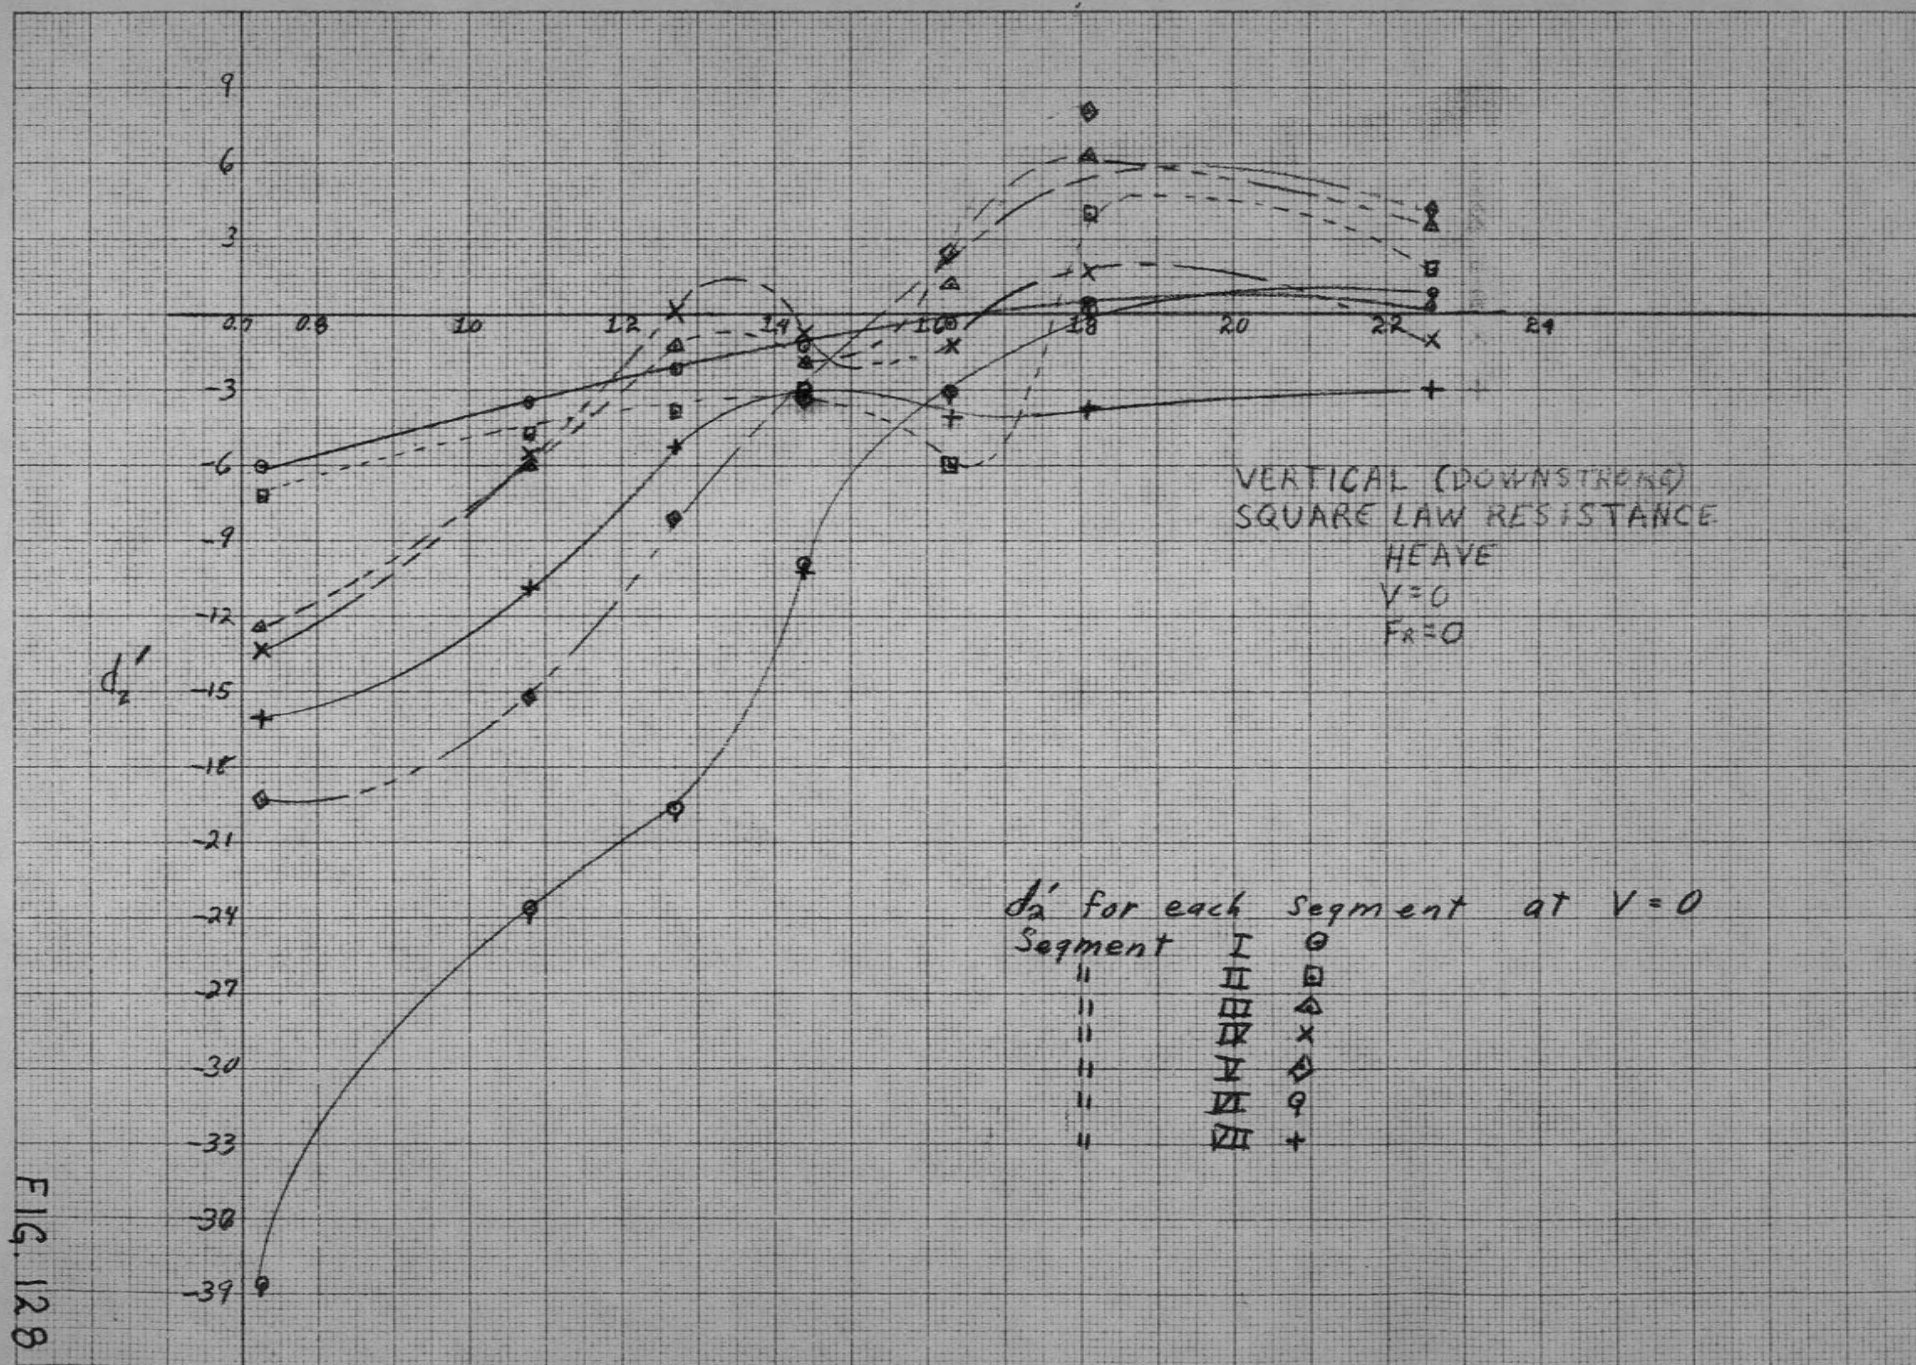 9
6
3
0.7 0.8 1.0 1.2 1.4 1.6 1.8 20 22 24
-3
-6
-9
-12
-15
-18
-21
-24
-27
-30
-33
-38
-39
d₂′
VERTICAL (DOWNSTROKE)
SQUARE LAW RESISTANCE
HEAVE
V=0
FR=0
d₂′ for each Segment at V=0
Segment I
" II
" III
" IV
" V
" VI
" VII
FIG. 128